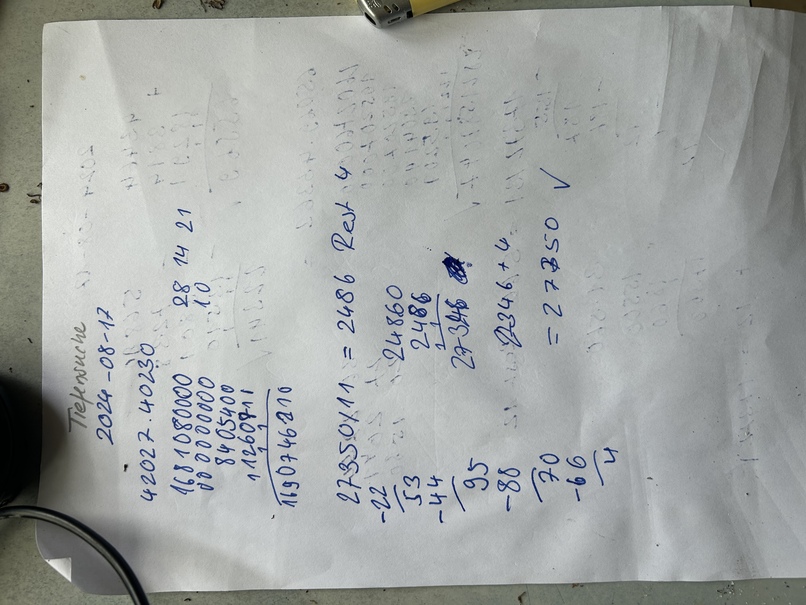 Tiefensuche
2024-08-17
42027 · 40230
1681080000 28 14 21
000000000 10
8405400
1260811
1 1
1690746210
27350/11 = 2486 Rest 4
-22
53 24860
-44 2486
1
95 27346
-88 27346+4
70 = 27350 ✓
-66
4